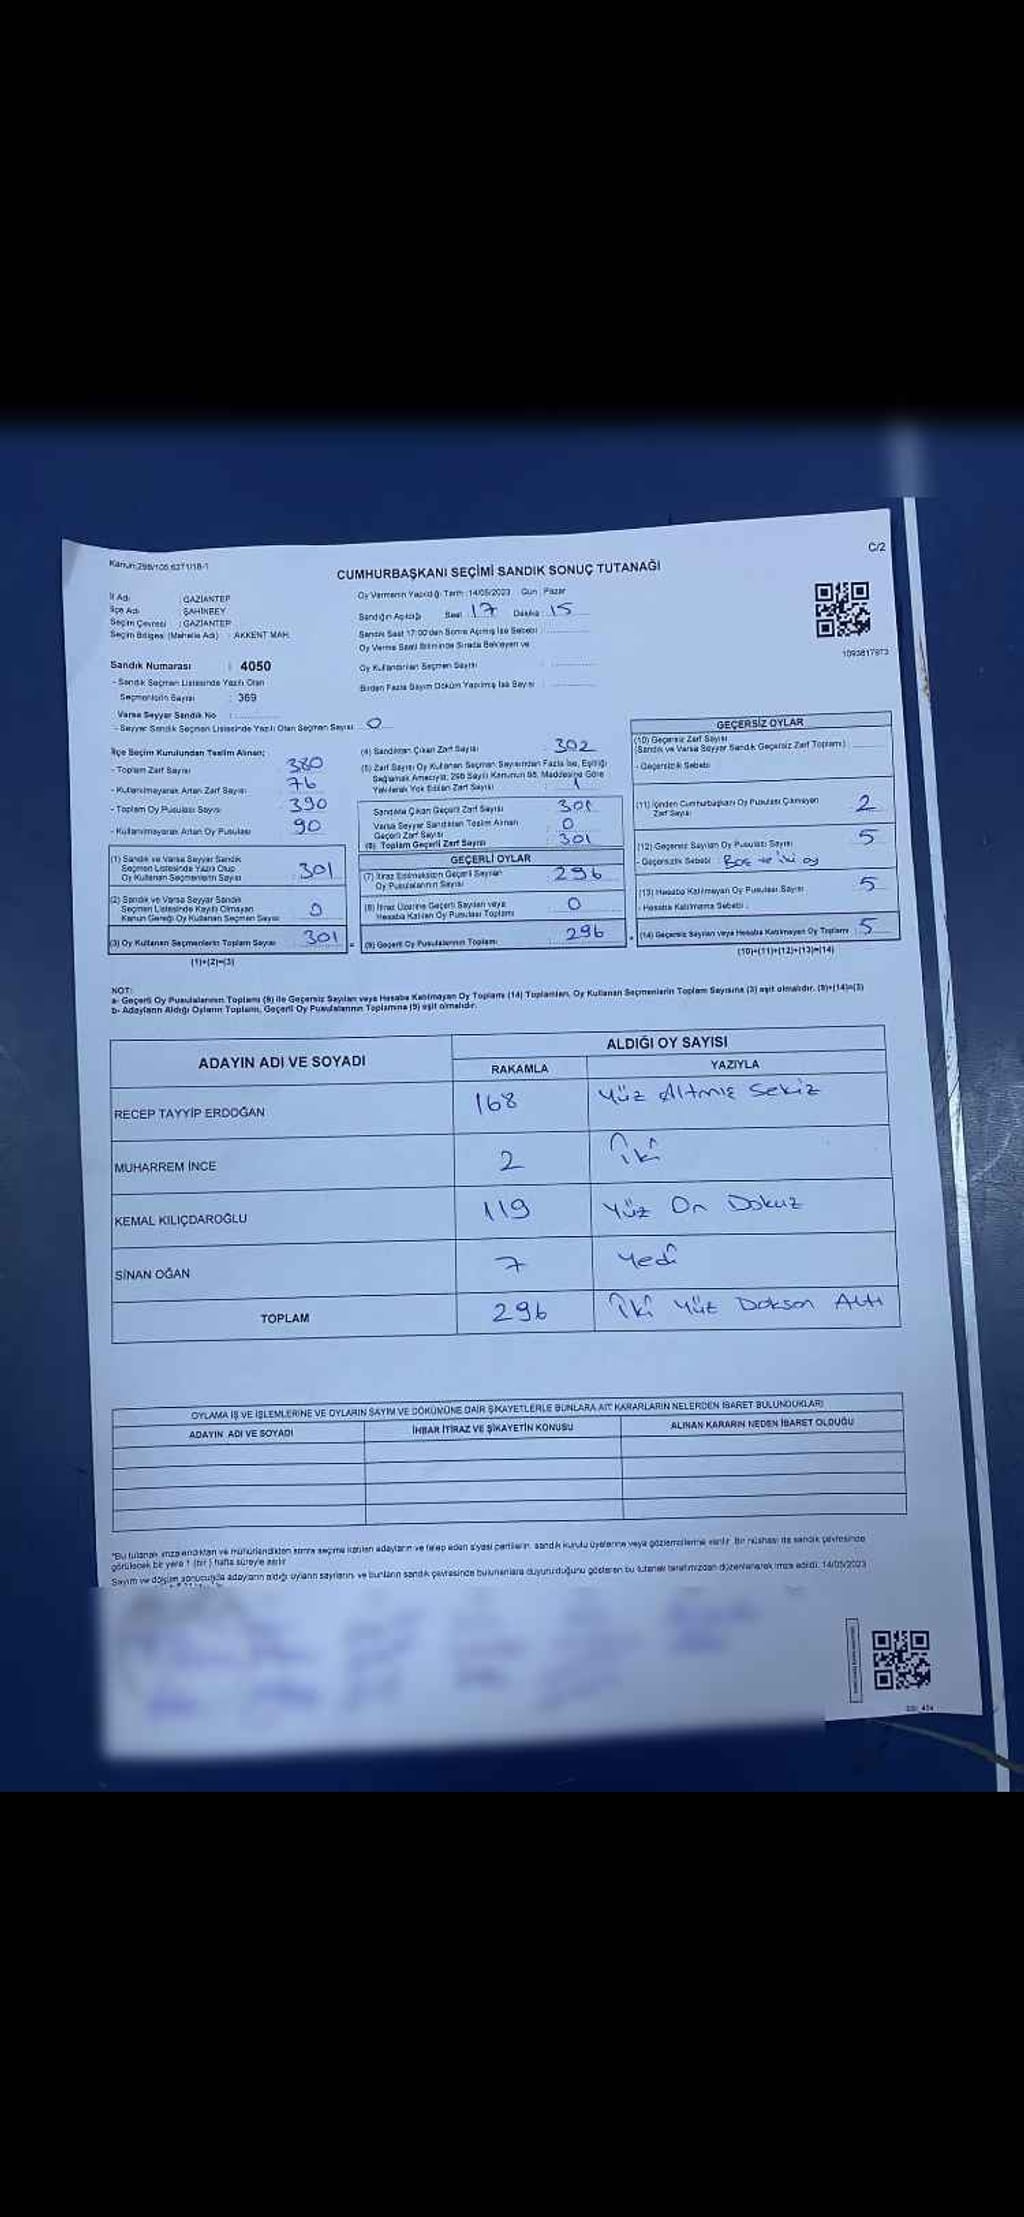 Kanun:298/105,6271/18-1
C/2
CUMHURBAŞKANI SEÇİMİ SANDIK SONUÇ TUTANAĞI
İl Adı : GAZİANTEP
İlçe Adı : ŞAHİNBEY
Seçim Çevresi : GAZİANTEP
Seçim Bölgesi (Mahalle Adı) : AKKENT MAH.
Oy Vermenin Yapıldığı Tarih : 14/05/2023 Gün : Pazar
Sandığın Açıldığı Saat : 17 Dakika : 15
Sandık Saat 17:00'den Sonra Açılmış İse Sebebi :
Oy Verme Saati Bitiminde Sırada Bekleyen ve
Oy Kullandırılan Seçmen Sayısı :
Birden Fazla Sayım Döküm Yapılmış İse Sayısı :
1093817973
Sandık Numarası : 4050
- Sandık Seçmen Listesinde Yazılı Olan
Seçmenlerin Sayısı : 369
Varsa Seyyar Sandık No :
- Seyyar Sandık Seçmen Listesinde Yazılı Olan Seçmen Sayısı : 0
İlçe Seçim Kurulundan Teslim Alınan;
- Toplam Zarf Sayısı : 380
- Kullanılmayarak Artan Zarf Sayısı : 76
- Toplam Oy Pusulası Sayısı : 390
- Kullanılmayarak Artan Oy Pusulası : 90
(1) Sandık ve Varsa Seyyar Sandık
Seçmen Listesinde Yazılı Olup
Oy Kullanan Seçmenlerin Sayısı : 301
(2) Sandık ve Varsa Seyyar Sandık
Seçmen Listesinde Kayıtlı Olmayan
Kanun Gereği Oy Kullanan Seçmen Sayısı : 0
(3) Oy Kullanan Seçmenlerin Toplam Sayısı : 301
(1)+(2)=(3)
(4) Sandıktan Çıkan Zarf Sayısı : 302
(5) Zarf Sayısı Oy Kullanan Seçmen Sayısından Fazla İse, Eşitliği
Sağlamak Amacıyla, 298 Sayılı Kanunun 98. Maddesine Göre
Yakılarak Yok Edilen Zarf Sayısı : 1
Sandıkta Çıkan Geçerli Zarf Sayısı : 301
Varsa Seyyar Sandıktan Teslim Alınan
Geçerli Zarf Sayısı : 0
(6) Toplam Geçerli Zarf Sayısı : 301
GEÇERLİ OYLAR
(7) İtiraz Edilmeksizin Geçerli Sayılan
Oy Pusulalarının Sayısı : 296
(8) İtiraz Üzerine Geçerli Sayılan veya
Hesaba Katılan Oy Pusulası Toplamı : 0
(9) Geçerli Oy Pusulalarının Toplamı : 296
GEÇERSİZ OYLAR
(10) Geçersiz Zarf Sayısı
(Sandık ve Varsa Seyyar Sandık Geçersiz Zarf Toplamı)
- Geçersizlik Sebebi :
(11) İçinden Cumhurbaşkanı Oy Pusulası Çıkmayan
Zarf Sayısı : 2
(12) Geçersiz Sayılan Oy Pusulası Sayısı : 5
- Geçersizlik Sebebi : Boş ve iki oy
(13) Hesaba Katılmayan Oy Pusulası Sayısı : 5
- Hesaba Katılmama Sebebi :
(14) Geçersiz Sayılan veya Hesaba Katılmayan Oy Toplamı : 5
(10)+(11)+(12)+(13)=(14)
NOT:
a- Geçerli Oy Pusulalarının Toplamı (9) ile Geçersiz Sayılan veya Hesaba Katılmayan Oy Toplamı (14) Toplamları, Oy Kullanan Seçmenlerin Toplam Sayısına (3) eşit olmalıdır. (9)+(14)=(3)
b- Adayların Aldığı Oyların Toplamı, Geçerli Oy Pusulalarının Toplamına (9) eşit olmalıdır.
ADAYIN ADI VE SOYADI
ALDIĞI OY SAYISI
RAKAMLA YAZIYLA
RECEP TAYYİP ERDOĞAN 168 Yüz Altmış Sekiz
MUHARREM İNCE 2 İki
KEMAL KILIÇDAROĞLU 119 Yüz On Dokuz
SİNAN OĞAN 7 Yedi
TOPLAM 296 İki Yüz Doksan Altı
OYLAMA İŞ VE İŞLEMLERİNE VE OYLARIN SAYIM VE DÖKÜMÜNE DAİR ŞİKAYETLERLE BUNLARA AİT KARARLARIN NELERDEN İBARET BULUNDUKLARI
ADAYIN ADI VE SOYADI İHBAR İTİRAZ VE ŞİKAYETİN KONUSU ALINAN KARARIN NEDEN İBARET OLDUĞU
*Bu tutanak imzalandıktan ve mühürlendikten sonra seçime katılan adayların ve talep eden siyasi partilerin, sandık kurulu üyelerine veya gözlemcilerine verilir. Bir nüshası da sandık çevresinde
görülecek bir yere 1 (bir) hafta süreyle asılır.
Sayım ve döküm sonucuyla adayların aldığı oyların sayılarını ve bunların sandık çevresinde bulunanlara duyurulduğunu gösteren bu tutanak tarafımızdan düzenlenerek imza edildi. 14/05/2023